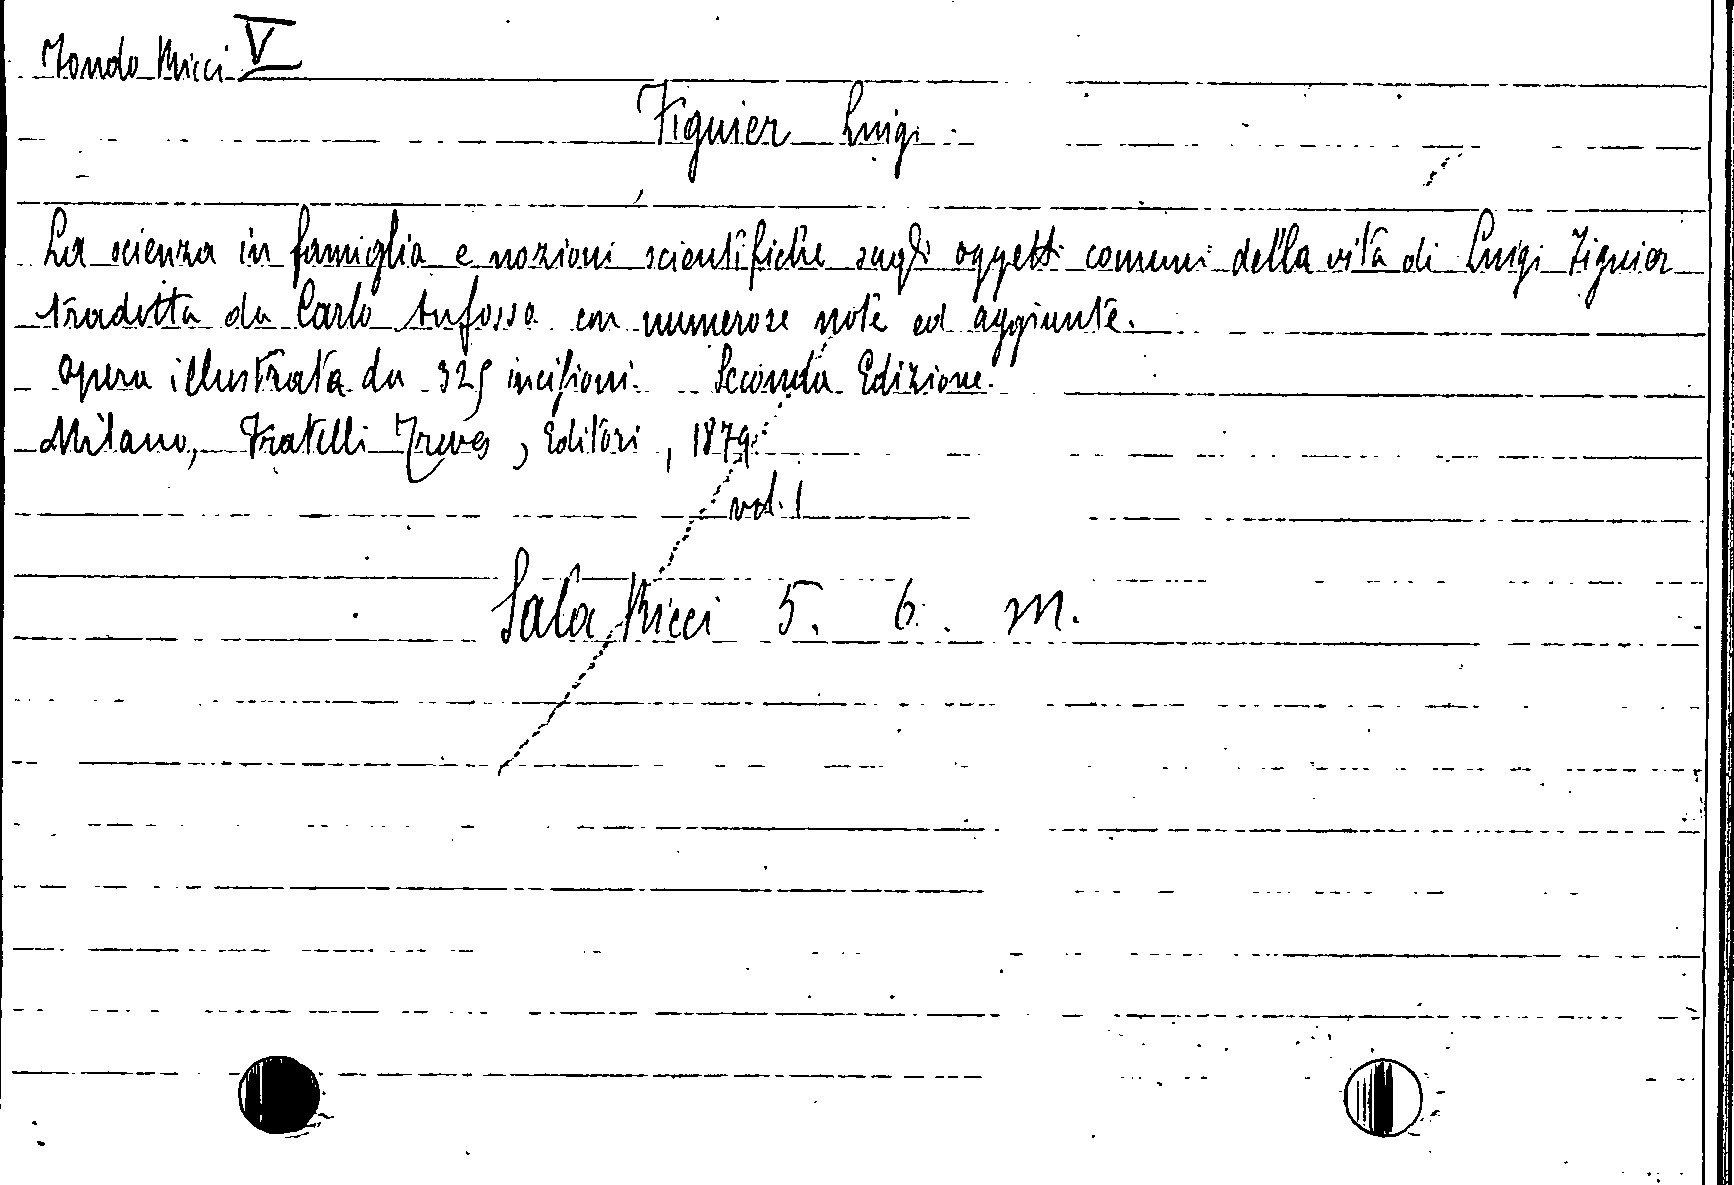 Fondo Ricci V
Figuier Luigi.
La scienza in famiglia e nozioni scientifiche sugli oggetti comuni della vita di Luigi Figuier
tradotta da Carlo Anfosso con numerose note ed aggiunte.
Opera illustrata da 325 incisioni. Seconda Edizione.
Milano, Fratelli Treves, Editori, 1879.
vol. 1
Sala Ricci 5. 6. M.